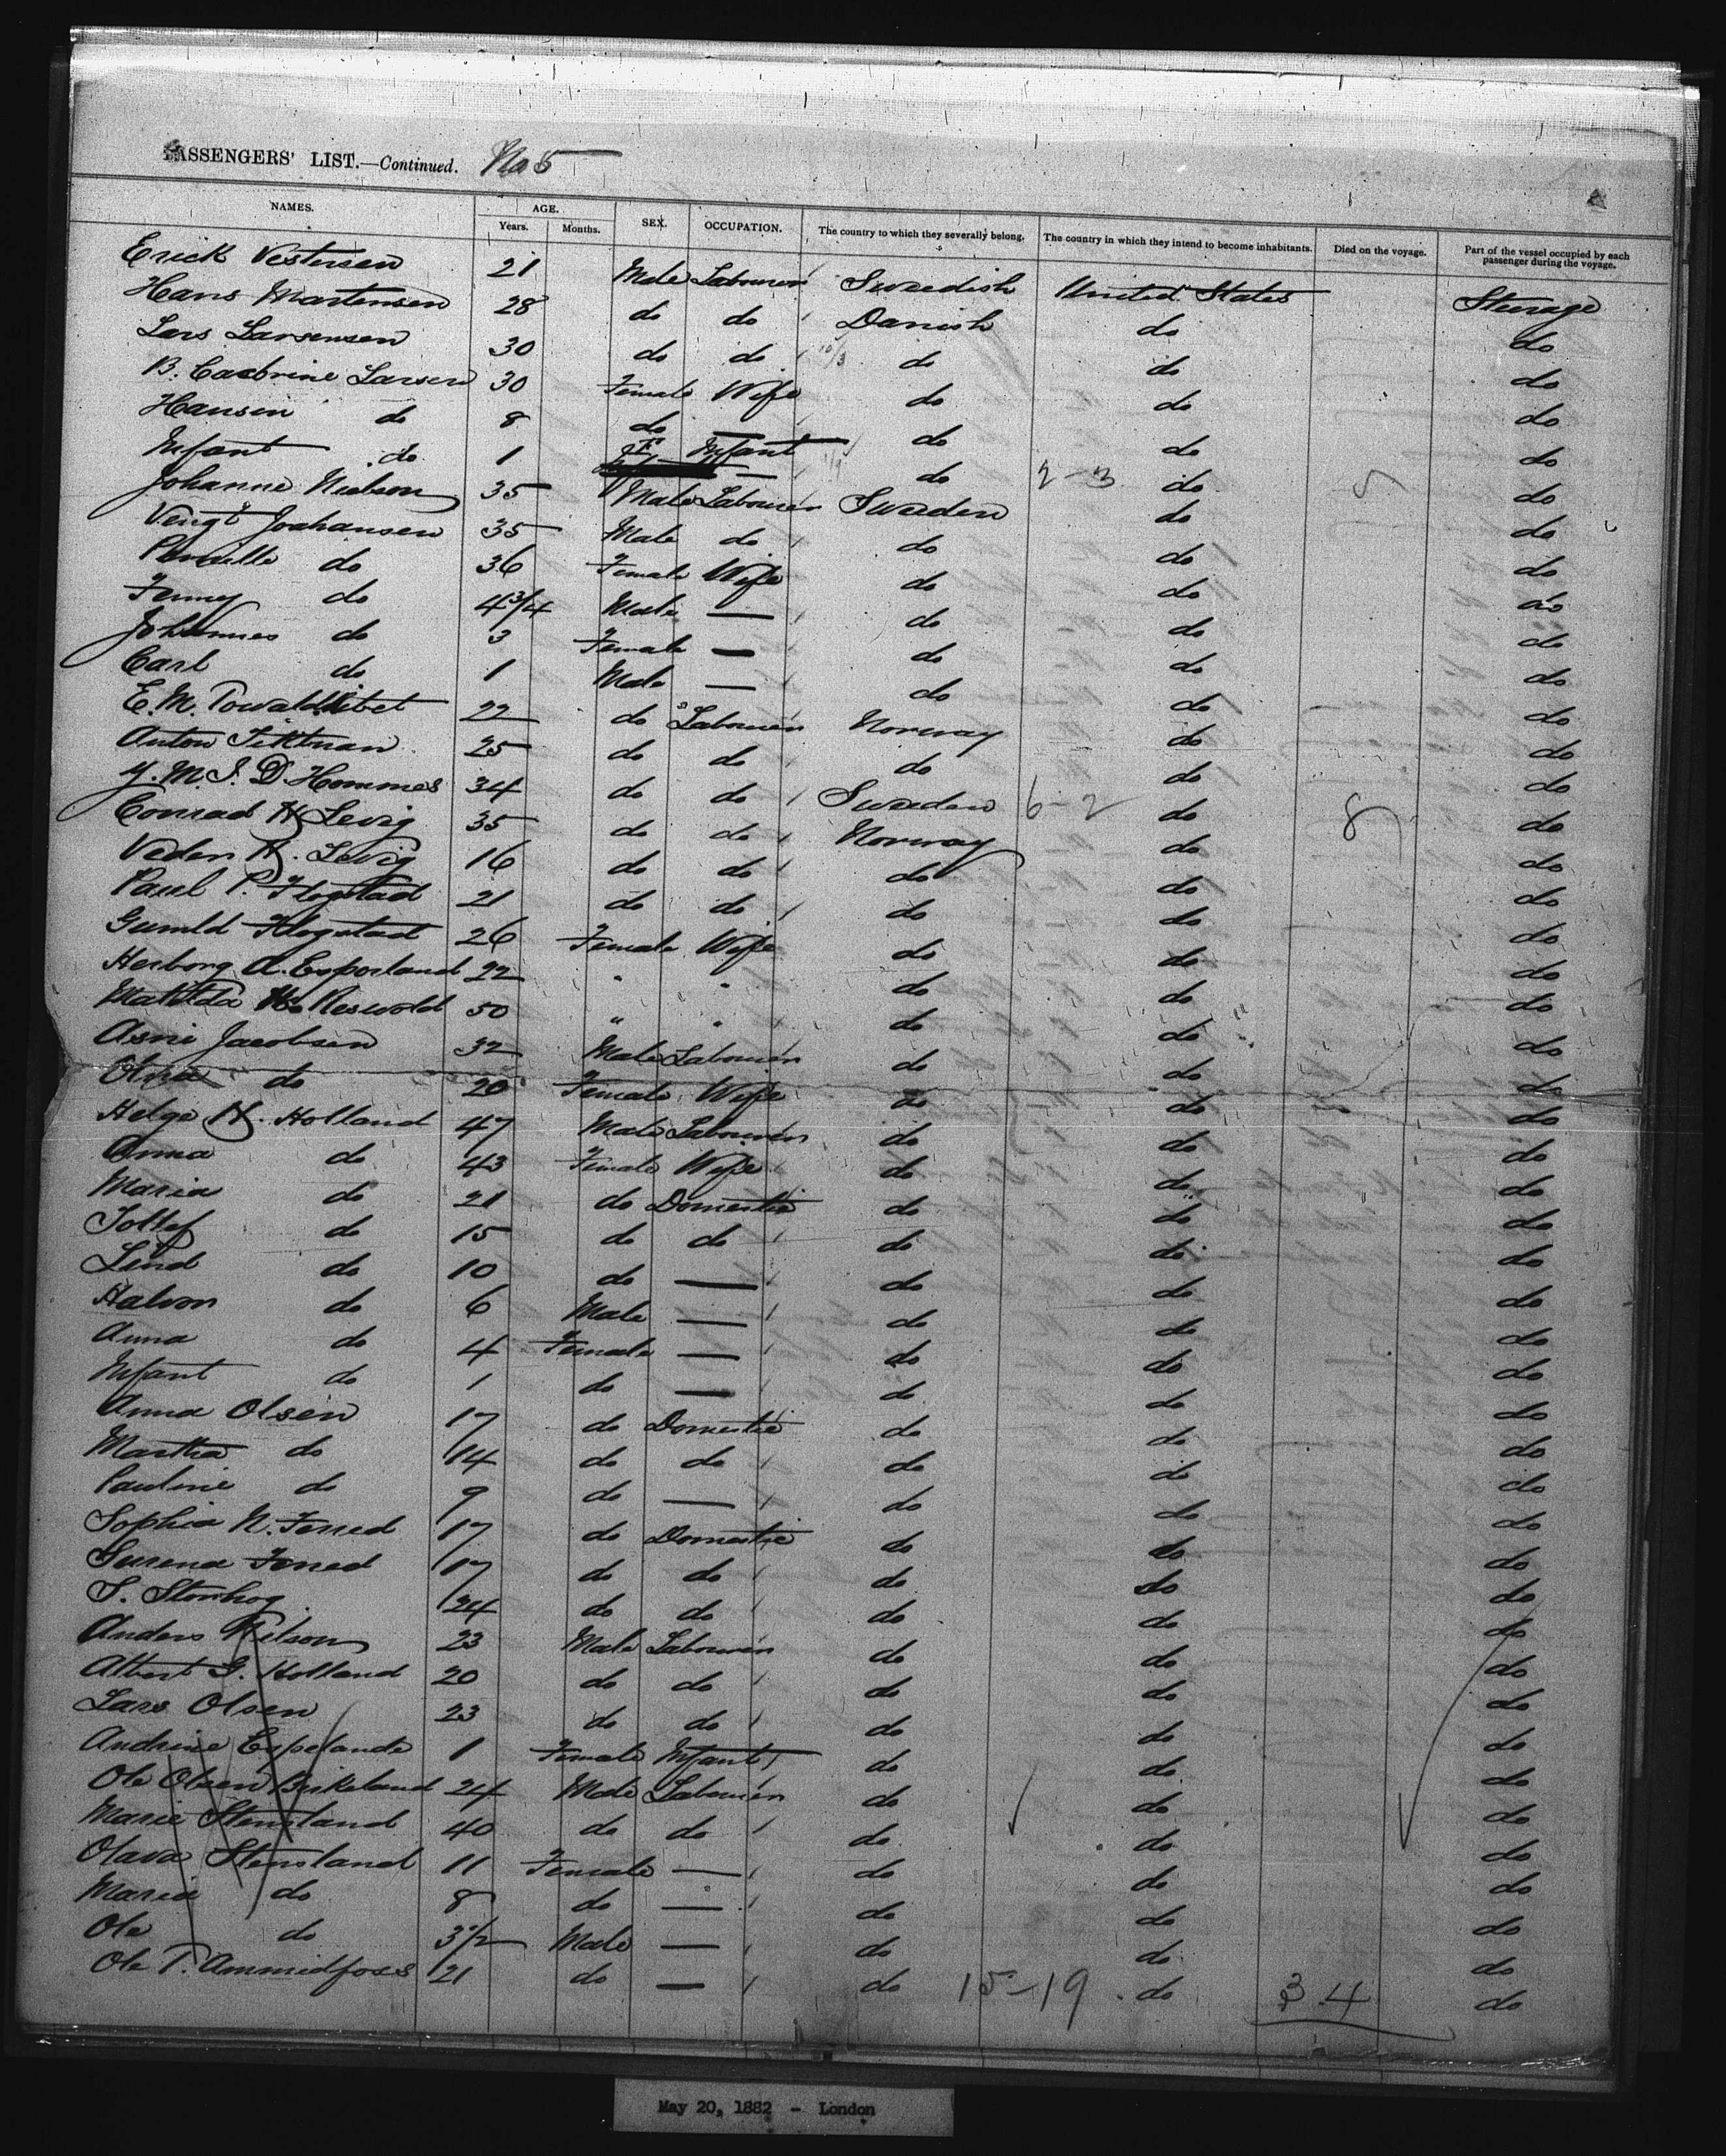 PASSENGERS' LIST.—Continued. No 5
NAMES. AGE. Years. Months. SEX. OCCUPATION. The country to which they severally belong. The country in which they intend to become inhabitants. Died on the voyage. Part of the vessel occupied by each passenger during the voyage.
Erick Vestersen 21 Male Labourer Sweedish United States Sterage
Hans Martensen 28 do do Danish do do
Lars Larsensen 30 do do do do do
B. Larsen 30 Female Wife do do do
Hansin do 8 do — do do do
Infant do 1 Infant do 2-3 do 5 do
Johanne Nielson 35 Male Labourer Sweeden do do
Vengt Joahansen 35 Male do do do do
Pernille do 36 Female Wife do do do
Jenny do 4 3/4 Male — do do do
Johannes do 3 Female — do do do
Carl do 1 Male — do do do
E. M. 22 do Labourer Norway do do
Anton 25 do do do do do
Y. M. J. D. Hommes 34 do do Sweeden 6-2 do 8 do
Conrad H Levig 35 do do Norway do do
Veden H. Levig 16 do do do do do
Paul P. Flogstad 21 do do do do do
Gunild Flogstad 26 Female Wife do do do
Herborg A. Esporland 22 " " do do do
Matilda Reswold 50 " " do do do
Asni Jacobsen 32 Male Labourer do do do
Olina do 20 Female Wife do do do
Helge H. Holland 47 Male Labourer do do do
Anna do 43 Female Wife do do do
Maria do 21 do Domestic do do do
Tollef do 15 do do do do do
Lend do 10 do — do do do
Halvor do 6 Male — do do do
Anna do 4 Female — do do do
Infant do 1 do — do do do
Anna Olsen 17 do Domestic do do do
Martha do 14 do do do do do
Pauline do 9 do — do do do
Sophia N. Fered 17 do Domestic do do do
Surena Fered 17 do do do do do
S. Storhog 24 do do do do do
Anders Nilson 23 Male Labourer do do do
Albert G. Holland 20 do do do do do
Lars Olsen 23 do do do do do
Andrine Espelande 1 Female Infant do do do
Ole Olsen Birkeland 24 Male Labourer do do do
Marie Stensland 40 do do do do do
Olava Stensland 11 Female — do do do
Maria do 8 do — do do do
Ole do 3 1/2 Male — do do do
Ole T. Ammidfoss 21 do — do 15-19 do 34 do
May 20, 1882 - London